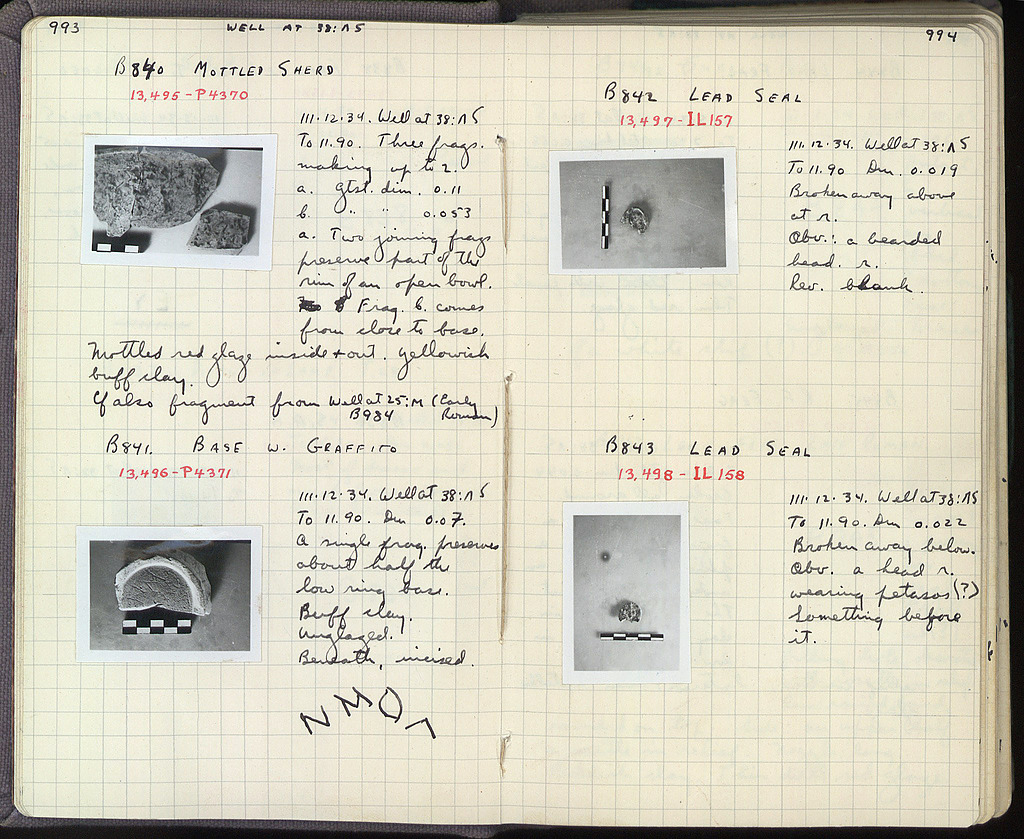 993
WELL AT 38:ΛS
B840 MOTTLED SHERD
13,495-P4370
111.12.34. Well at 38:ΛS
To 11.90. Three frags.
making up to 2.
a. Gtst. dim. 0.11
b. " " 0.053
a. Two joining frags
preserve part of the
rim of an open bowl.
Frag. b. comes
from close to base.
Mottled red glaze inside + out. yellowish
buff clay.
Cf also fragment from Well at 25:M (Early
B984 Roman)
B841. BASE W. GRAFFITO
13,496-P4371
111.12.34. Well at 38:ΛS
To 11.90. Dm 0.07.
A single frag. preserves
about half the
low ring base.
Buff clay.
Unglazed.
Beneath, incised.
994
B842 LEAD SEAL
13,497-IL157
111.12.34. Well at 38:ΛS
To 11.90 Dm. 0.019
Broken away above
at r.
Obv.: a bearded
head. r.
Rev. blank.
B843 LEAD SEAL
13,498-IL158
111.12.34. Well at 38:ΛS
To 11.90. Dm 0.022
Broken away below.
Obv. a head r.
wearing petasos (?)
Something before
it.